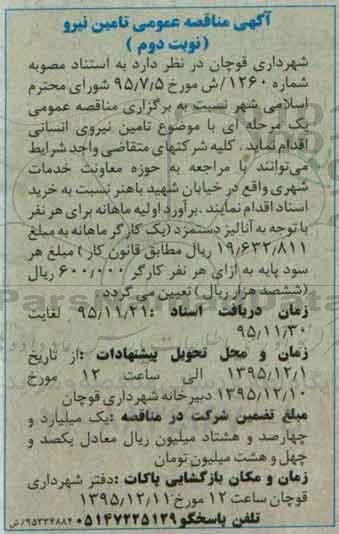 آگهی مناقصه عمومی تامین نیرو
( نوبت دوم )
شهرداری قوچان در نظر دارد به استناد مصوبه
شماره ۱۲۶۰/ش مورخ ۹۵/۷/۵ شورای محترم
اسلامی شهر نسبت به برگزاری مناقصه عمومی
یک مرحله ای با موضوع تامین نیروی انسانی
اقدام نماید . کلیه شرکتهای متقاضی واجد شرایط
می‌توانند با مراجعه به حوزه معاونت خدمات
شهری واقع در خیابان شهید باهنر نسبت به خرید
اسناد اقدام نمایند . برآورد اولیه ماهانه برای هر نفر
با توجه به آنالیز دستمزد (یک کارگر ماهانه به مبلغ
۱۹,۶۳۲,۸۱۱ ریال مطابق قانون کار ) مبلغ هر
سود پایه به ازای هر نفر کارگر ۶۰۰,۰۰۰ ریال
(ششصد هزار ریال ) تعیین می گردد.
زمان دریافت اسناد :۹۵/۱۱/۲۱ لغایت
۹۵/۱۱/۳۰
زمان و محل تحویل پیشنهادات :از تاریخ
۱۳۹۵/۱۲/۱ الی ساعت ۱۲ مورخ
۱۳۹۵/۱۲/۱۰ دبیرخانه شهرداری قوچان
مبلغ تضمین شرکت در مناقصه :یک میلیارد و
چهارصد و هشتاد میلیون ریال معادل یکصد و
چهل و هشت میلیون تومان
زمان و مکان بازگشایی پاکات :دفتر شهرداری
قوچان ساعت ۱۲ مورخ ۱۳۹۵/۱۲/۱۱
تلفن پاسخگو ۰۵۱۴۷۲۲۵۱۲۹ ۹۵۳۳۴۸۸۴/ش